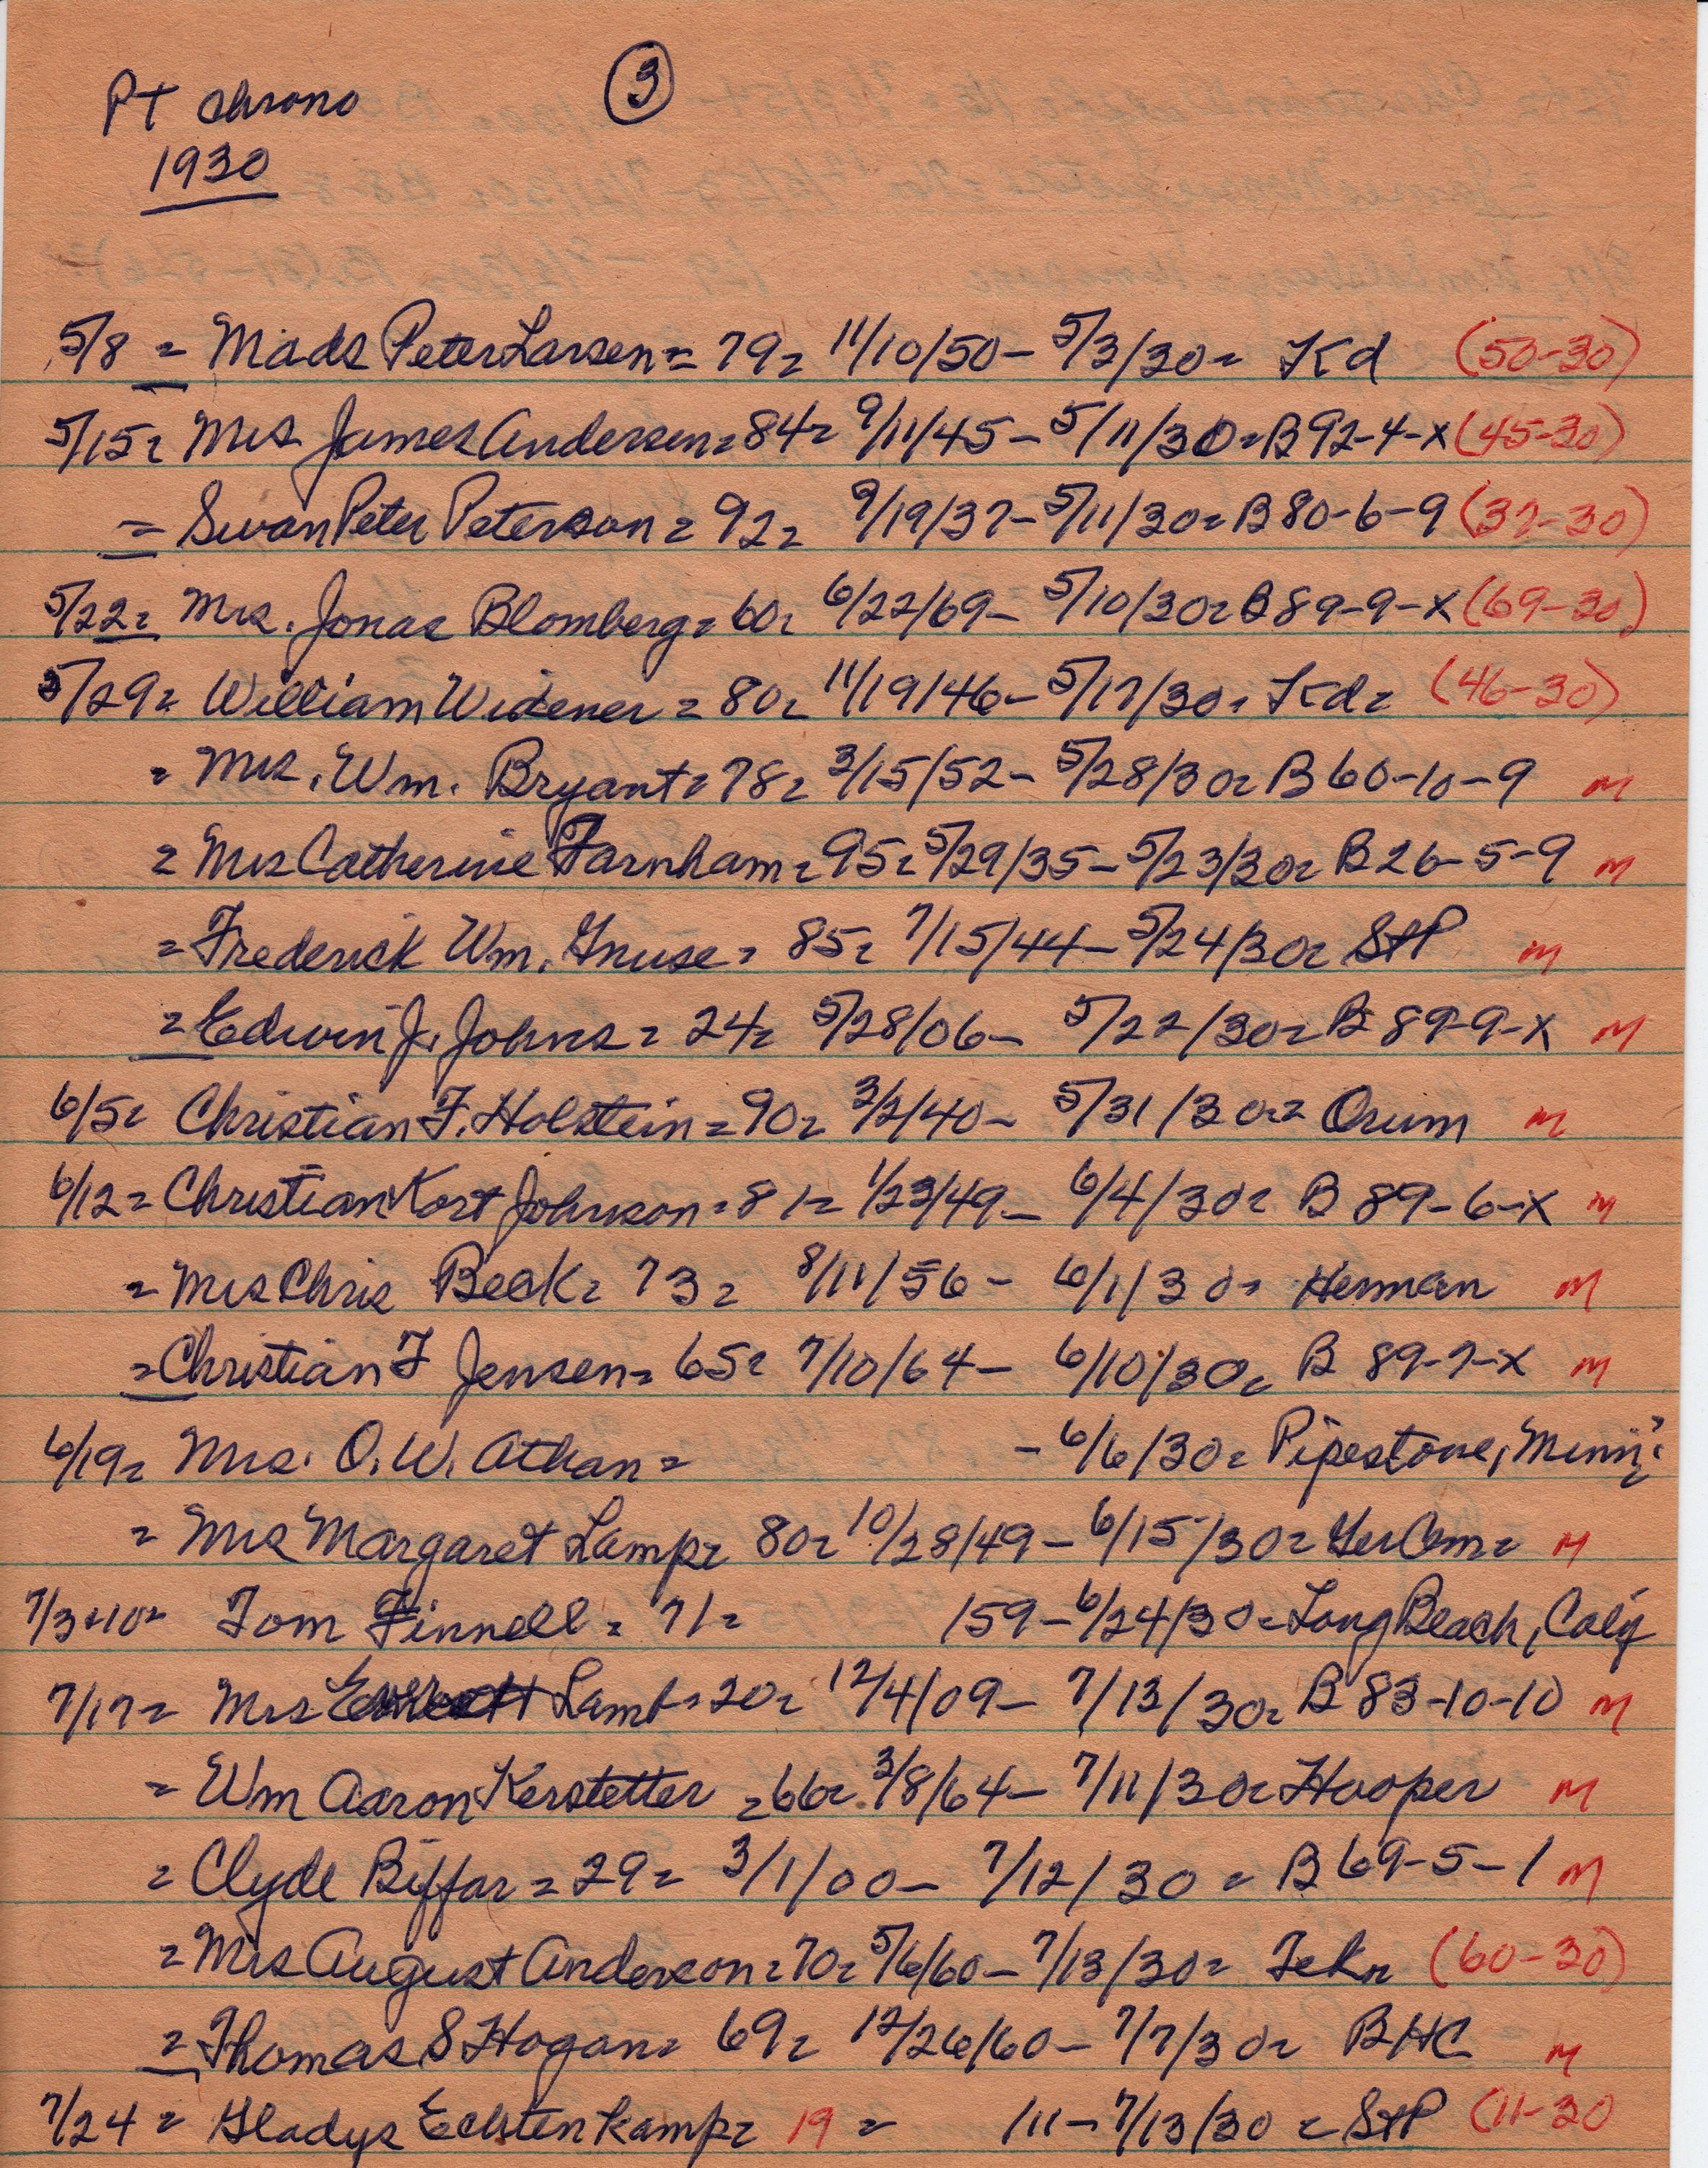 Pt chrono ③
1930
5/8 = Mads Peter Larsen = 79 = 11/10/50 - 5/3/30 = Kd (50-30)
5/15 = Mrs James Andersen = 84 = 9/11/45 - 5/11/30 = B 92-4-x (45-30)
= Swan Peter Peterson = 92 = 9/19/37 - 5/11/30 = B 80-6-9 (37-30)
5/22 = Mrs. Jonas Blomberg = 60 = 6/22/69 - 5/10/30 = B 89-9-x (69-30)
5/29 = William Widener = 80 = 11/19/46 - 5/17/30 = Kd = (46-30)
= Mrs. Wm. Bryant = 78 = 3/15/52 - 5/28/30 = B 60-10-9 M
= Mrs Catherine Farnham = 95 = 5/29/35 - 5/23/30 = B 26-5-9 M
= Frederick Wm. Gnuse = 85 = 7/15/44 - 5/24/30 = StP M
= Edwin J. Johns = 24 = 5/28/06 - 5/22/30 = B 89-9-x M
6/5 = Christian F. Holstein = 90 = 3/2/40 - 5/31/30 = Orum M
6/12 = Christian Kort Johnson = 81 = 1/23/49 - 6/4/30 = B 89-6-x M
= Mrs Chris Beck = 73 = 8/11/56 - 6/1/30 = Herman M
= Christian F Jensen = 65 = 7/10/64 - 6/10/30 = B 89-7-x M
6/19 = Mrs. O. W. Athan = - 6/6/30 = Pipestone, Minn.
= Mrs Margaret Lamp = 80 = 10/28/49 - 6/15/30 = Ger Cem = M
7/3+10 = Tom Finnell = 71 = /59 - 6/24/30 = Long Beach, Calif
7/17 = Mrs Lamb = 20 = 12/4/09 - 7/13/30 = B 83-10-10 M
= Wm Aaron Kerstetter = 66 = 3/8/64 - 7/11/30 = Hooper M
= Clyde Biffar = 29 = 3/1/00 - 7/12/30 = B 69-5-1 M
= Mrs August Anderson = 70 = 5/6/60 - 7/13/30 = Tek = (60-30)
= Thomas S Hogan = 69 = 12/26/60 - 7/7/30 = BHC M
7/24 = Gladys Echtenkamp = 19 = /11 - 7/13/30 = StP (11-30